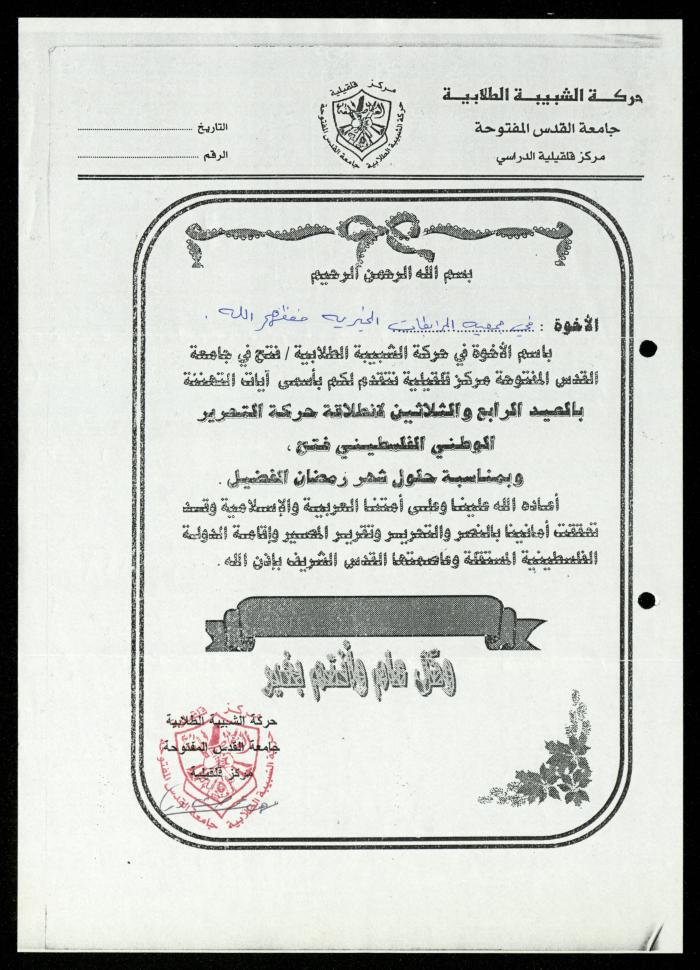 حركة الشبيبة الطلابية
جامعة القدس المفتوحة
مركز قلقيلية الدراسي
مركز قلقيلية
حركة الشبيبة الطلابية
جامعة القدس المفتوحة
التاريخ ..............................
الرقم ..............................
بسم الله الرحمن الرحيم
الأخوة : في جمعية المرابطات الخيرية حفظهم الله .
باسم الأخوة في حركة الشبيبة الطلابية / فتح في جامعة
القدس المفتوحة مركز قلقيلية نتقدم لكم بأسمى آيات التهنئة
بالعيد الرابع والثلاثين لانطلاقة حركة التحرير
الوطني الفلسطيني فتح ،
وبمناسبة حلول شهر رمضان الفضيل .
أعاده الله علينا وعلى أمتنا العربية والإسلامية وقد
تحققت أمانينا بالنصر والتحرير وتقرير المصير وإقامة الدولة
الفلسطينية المستقلة وعاصمتها القدس الشريف بإذن الله .
وكل عام وأنتم بخير
حركة الشبيبة الطلابية
جامعة القدس المفتوحة
مركز قلقيلية
مركز قلقيلية
حركة الشبيبة الطلابية
جامعة القدس المفتوحة